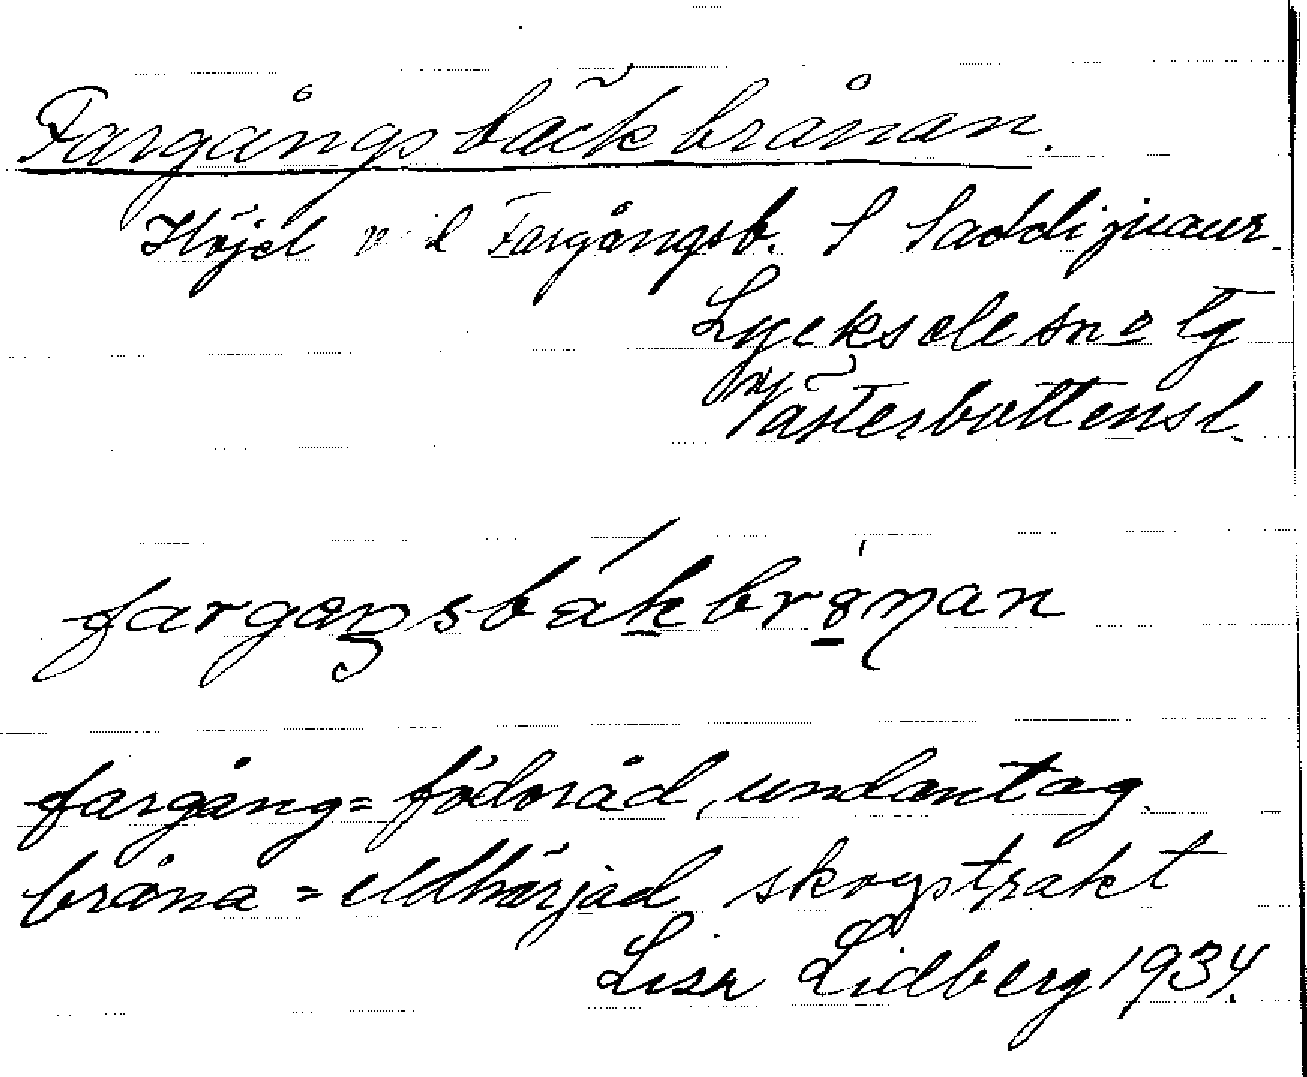 Fargångsbäckbrånan.
Höjd vid Fargångsb. S Saddijuaur.
Lycksele sn o tg
Västerbottensl.
fargaŋsbäkbrånan
fargång = födoråd, undantag
bråna = eldhärjad skogstrakt
Lisa Lidberg 1934.